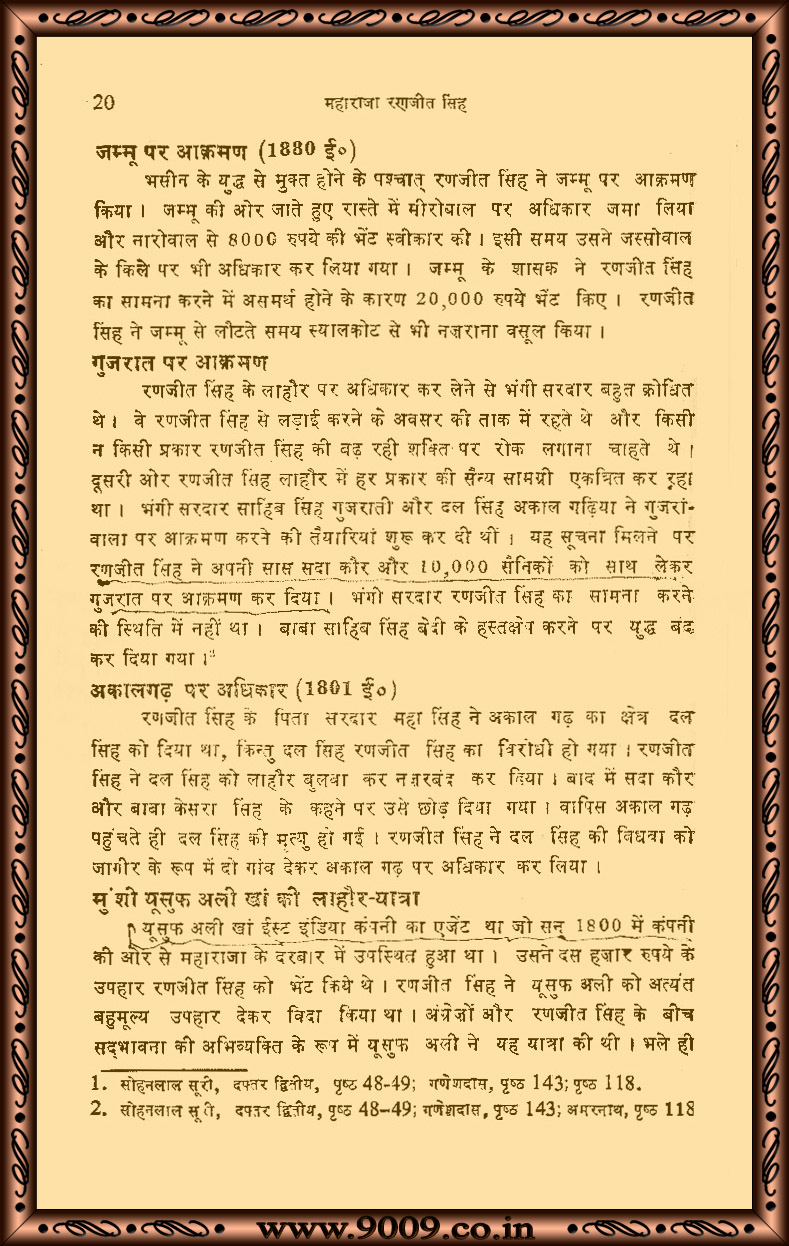 20 महाराजा रणजीत सिंह
जम्मू पर आक्रमण (1880 ई०)
भसीन के युद्ध से मुक्त होने के पश्चात् रणजीत सिंह ने जम्मू पर आक्रमण
किया। जम्मू की ओर जाते हुए रास्ते में मीरोवाल पर अधिकार जमा लिया
और नारोवाल से 8000 रुपये की भेंट स्वीकार की। इसी समय उसने जस्सोवाल
के किले पर भी अधिकार कर लिया गया। जम्मू के शासक ने रणजीत सिंह
का सामना करने में असमर्थ होने के कारण 20,000 रुपये भेंट किए। रणजीत
सिंह ने जम्मू से लौटते समय स्यालकोट से भी नज़राना वसूल किया।
गुजरात पर आक्रमण
रणजीत सिंह के लाहौर पर अधिकार कर लेने से भंगी सरदार बहुत क्रोधित
थे। वे रणजीत सिंह से लड़ाई करने के अवसर की ताक में रहते थे और किसी
न किसी प्रकार रणजीत सिंह की बढ़ रही शक्ति पर रोक लगाना चाहते थे।
दूसरी ओर रणजीत सिंह लाहौर में हर प्रकार की सैन्य सामग्री एकत्रित कर रहा
था। भंगी सरदार साहिब सिंह गुजराती और दल सिंह अकाल गढ़िया ने गुजरां-
वाला पर आक्रमण करने की तैयारियां शुरू कर दी थीं। यह सूचना मिलने पर
रणजीत सिंह ने अपनी सास सदा कौर और 10,000 सैनिकों को साथ लेकर
गुजरात पर आक्रमण कर दिया। भंगी सरदार रणजीत सिंह का सामना करने
की स्थिति में नहीं था। बाबा साहिब सिंह बेदी के हस्तक्षेप करने पर युद्ध बंद
कर दिया गया।²
अकालगढ़ पर अधिकार (1801 ई०)
रणजीत सिंह के पिता सरदार महा सिंह ने अकाल गढ़ का क्षेत्र दल
सिंह को दिया था, किन्तु दल सिंह रणजीत सिंह का विरोधी हो गया। रणजीत
सिंह ने दल सिंह को लाहौर बुलवा कर नज़रबंद कर दिया। बाद में सदा कौर
और बाबा केसरा सिंह के कहने पर उसे छोड़ दिया गया। वापिस अकाल गढ़
पहुंचते ही दल सिंह की मृत्यु हो गई। रणजीत सिंह ने दल सिंह की विधवा को
जागीर के रूप में दो गांव देकर अकाल गढ़ पर अधिकार कर लिया।
मुंशी यूसुफ अली खां की लाहौर-यात्रा
यूसुफ अली खां ईस्ट इंडिया कंपनी का एजेंट था जो सन् 1800 में कंपनी
की ओर से महाराजा के दरबार में उपस्थित हुआ था। उसने दस हज़ार रुपये के
उपहार रणजीत सिंह को भेंट किये थे। रणजीत सिंह ने यूसुफ अली को अत्यंत
बहुमूल्य उपहार देकर विदा किया था। अंग्रेज़ों और रणजीत सिंह के बीच
सद्भावना की अभिव्यक्ति के रूप में यूसुफ अली ने यह यात्रा की थी। भले ही
1. सोहनलाल सूरी, दफ्तर द्वितीय, पृष्ठ 48-49; गणेशदास, पृष्ठ 143; पृष्ठ 118.
2. सोहनलाल सूरी, दफ्तर द्वितीय, पृष्ठ 48-49; गणेशदास, पृष्ठ 143; अमरनाथ, पृष्ठ 118
www.9009.co.in